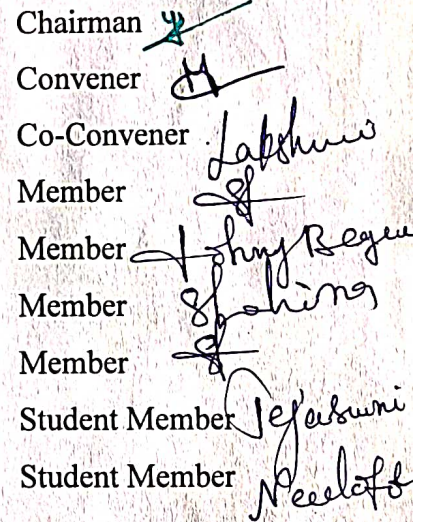 Chairman
Convener
Co-Convener Lakshmi
Member
Member Johny Begum
Member Shahina
Member
Student Member Tejaswini
Student Member